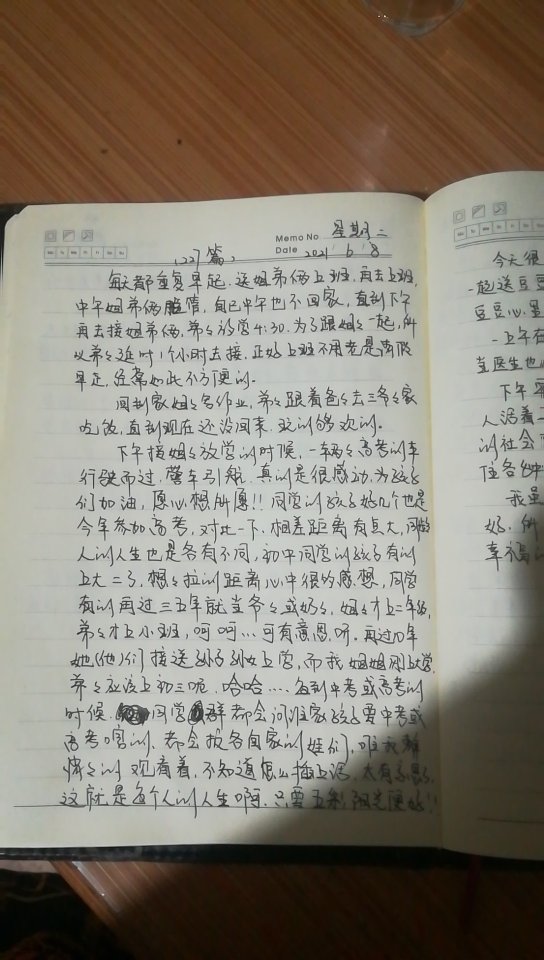 Memo No 星期二
(27)篇 Date 2021 6 8
每天都重复早起、送姐弟俩上班、再去上班,
中午姐弟俩脱管,自己中午也不回家,直到下午
再去接姐弟俩,弟々放学4:30.为了跟姐々一起,所
以弟々延时1个小时去接,正好上班不用老是请假
早走,经常如此不方便的。
回到家姐々写作业,弟々跟着爸々去三爷々家
吃饭,直到现在还没回来,玩的够欢的。
下午接姐々放学的时候,一辆々高考的车
行驶而过,警车引航,真的是很感动,为孩子
们加油,愿心想所愿!!同学的孩子好几个也是
今年参加高考,对比一下,相差距离有点大,
人的人生也是各有不同,初中同学的孩子有的
上大二了,想々拉的距离心中很的感想,同学
有的再过三五年就当爷々或奶々,姐々才上二年级,
弟々才上小班,呵呵…可有意思呀.再过10年
她(他)们接送孙子孙女上学,而我姐姐刚上大学,
弟々应该上初三呢,哈哈….每到中考或高考的
时候,同学群都会问谁家孩子要中考或
高考啥的,都会报各自家的娃们,唯我静
悄々的观看着,不知道怎么插上话,太有意思了
这就是每个人的人生啊.只要五彩阳光便好!!
今天很
一起送豆豆
豆豆心里
一上午在
当医生也
下午
人活着
的社会
我虽
好,所
幸福的